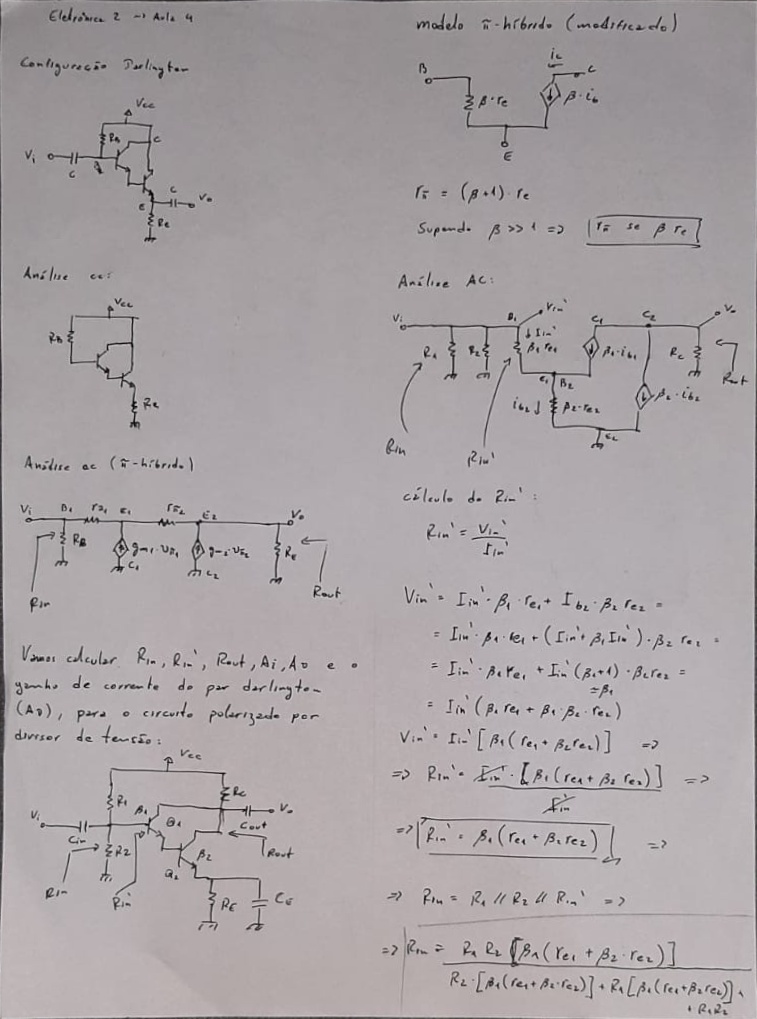 Eletrônica 2 → Aula 4
Configuração Darlington
Vcc
RB
C
Vi
C
B
C
Vo
E
RE
Análise cc:
Vcc
RB
RE
Análise ac (π-híbrido)
Vi
B1
rπ1
E1
rπ2
E2
Vo
RB
gm1·vπ1
gm2·vπ2
RE
C1
C2
Rin
Rout
Vamos calcular Rin, Rin', Rout, Ai, Av e o
ganho de corrente do par darlington
(AD), para o circuito polarizado por
divisor de tensão:
Vcc
R1
RC
Vi
β1
Q1
Vo
Cin
Cout
R2
β2
Rout
Q2
Rin
Rin'
RE
CE
modelo π-híbrido (modificado)
ic
B
C
β·re
β·ib
E
rπ = (β+1)·re
Supondo β >> 1 => rπ se β re
Análise AC:
Vi
B1
Vin'
C1
C2
Vo
↓Iin'
R1
R2
β1 re1
β1·ib1
RC
Rout
E1
B2
ib2↓
β2·re2
β2·ib2
E2
Rin
Rin'
cálculo do Rin':
Rin' = Vin' / Iin'
Vin' = Iin'·β1·re1 + Ib2·β2 re2 =
= Iin'·β1·re1 + (Iin' + β1 Iin')·β2 re2 =
= Iin'·β1 re1 + Iin' (β1+1)·β2 re2 =
≃β1
= Iin' (β1 re1 + β1·β2·re2)
Vin' = Iin' [β1(re1 + β2 re2)] =>
=> Rin' = Iin'·[β1(re1 + β2 re2)] / Iin' =>
=> Rin' = β1(re1 + β2 re2) =>
=> Rin = R1 // R2 // Rin' =>
=> Rin = R1 R2 [β1(re1 + β2·re2)]
R2·[β1(re1+β2·re2)] + R1[β1(re1+β2re2)] +
+ R1R2